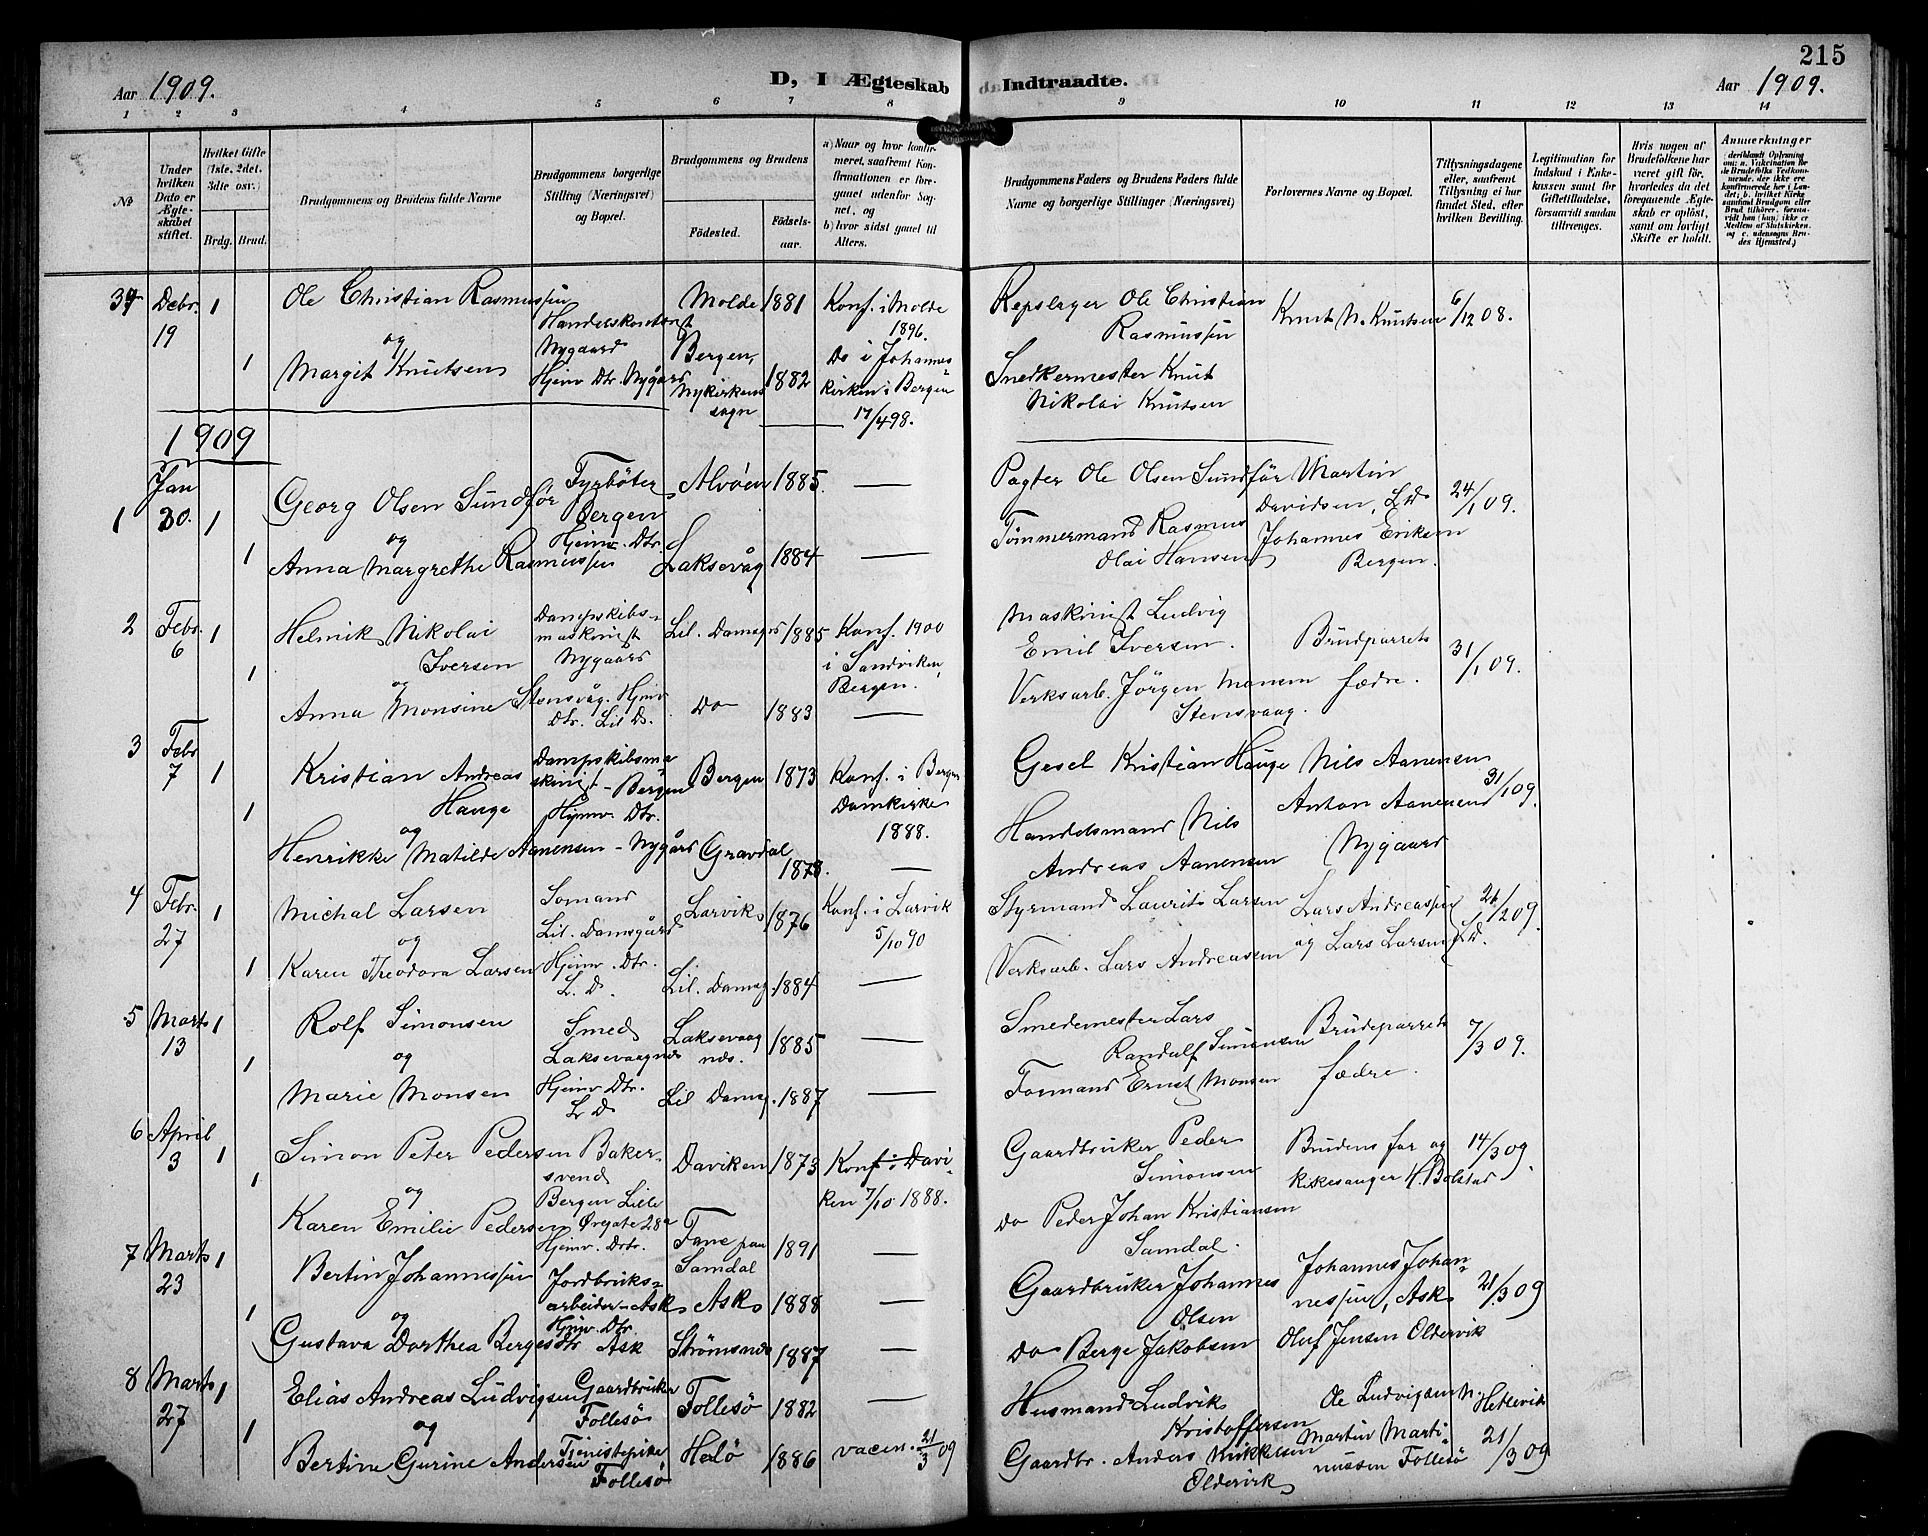 215
Aar 1909.
D, I Ægteskab Indtraadte.
Aar 1909.
1 2 3 4 5 6 7 8 9 10 11 12 13 14
No
Under hvilken Dato er Ægteskabet stiftet.
Hvilket Gifte (1ste, 2det, 3die osv.)
Brdg. Brud.
Brudgommens og Brudens fulde Navne
Brudgommens borgerlige Stilling (Næringsvei) og Bopæl.
Brudgommens og Brudens
Fødested.
Fødselsaar.
a) Naar og hvor konfirmeret, saafremt Konfirmationen er foregaaet udenfor Sognet, og
b) hvor sidst gaaet til Alters.
Brudgommens Faders og Brudens Faders fulde Navne og borgerlige Stillinger (Næringsvei)
Forlovernes Navne og Bopæl.
Tillysningsdagene eller, saafremt Tillysning ei har fundet Sted, efter hvilken Bevilling.
Legitimation for Indskud i Enkekassen samt for Giftetilladelse, forsaavidt saadan tiltrænges.
Hvis nogen af Brudefolkene har været gift før, hvorledes da det foregaaende Ægteskab er opløst, samt om lovligt Skifte er holdt.
Anmærkninger
(deriblandt Oplysning om: a. Vakcination for de Brudefolks Vedkommende, der ikke ere konfirmerede her i Landet; b. hvilket Kirkesamfund Brudgom eller Brud tilhører, forsaavidt han (hun) ikke er Medlem af Statskirken, og c. udensogns Brudes Hjemsted.)
39 Debr. 19 1
Ole Christian Rasmussen
Handelskontorist
Nygaard
Molde 1881
Konf. i Molde
1896.
Repslager Ole Christian
Rasmussen
Knut N. Knutsen
6/12 08.
og
1 Margit Knutsen
Hjemv. Dtr. Nygård
Bergen,
Nykirkens
sogn
1882
Do i Johannes
kirken i Bergen
17/4 98.
Snedkermester Knut
Nikolai Knutsen
1909
1 Jan 30. 1
Georg Olsen Sundfør
Fyrbøter
Bergen
Alvøen 1885. —
Pagter Ole Olsen Sundfør
Martin
Davidsen, L.D.
24/1 09.
og
1 Anna Margrethe Rasmussen
Hjemv. Dtr.
Laksevåg 1884 —
Tømmermand Rasmus
Olai Hansen
Johannes Eriksen
Bergen.
2 Febr. 6 1
Helmik Nikolai
Iversen
Dampskibs-
maskinist
Nygaard
Lil. Damsg 1885
Konf. 1900
i Sandviken,
Bergen.
Maskinist Ludvig
Emil Iversen.
Brudparrets
fædre.
31/1 09.
og
1 Anna Monsine Stensvåg.
Hjemv.
Dtr. Lil D.
Do 1883 —
Verksarb. Jørgen Monsen
Stensvaag.
3 Febr 7 1
Kristian Andreas
Hauge
Dampskibsma
skinist - Bergen
Bergen 1873
Konf. i Bergen
Domkirke
1888.
Gesel Kristian Hauge
Nils Aanensen
Anton Aanensen
Nygaard
31/1 09.
og
1 Henrikke Matilde Aanensen
Hjemv. Dtr.
- Nygård
Gravdal
1878. —
Handelsmand Nils
Andreas Aanensen
4 Febr. 27 1
Michal Larsen
Sømand
Lil. Damsgård
Larvik 1876
Konf. i Larvik
5/10 90
Styrmand Laurits Larsen
Lars Andreassen
og Lars Larsen L.D.
21/2 09.
og
1 Karen Theodora Larsen
Hjemv. Dtr.
L. D.
Lil. Damsg. 1884 —
Verksarb. Lars Andreassen
5 Marts 13 1
Rolf Simonsen
Smed
Laksevaagnæs
Laksevaag
næs. 1885 —
Smedemester Lars
Randulf Simonsen
Brudeparrets
fædre.
7/3 09.
og
1 Marie Monsen
Hjemv. Dtr.
L D
Lil Damsg. 1887 —
Formand Ernst Monsen
6 April 3 1
Simon Peter Pedersen
Baker-
svend
Bergen Lille
Øvregate 28a
Daviken 1873
Konf. i Davi-
ken 7/10 1888.
Gaardbruker Peder
Simonsen
Brudens far og
kirkesanger H. Bolstad
14/3 09.
og
1 Karen Emilie Pedersen
Hjemv. Dtr.
Fane paa
Samdal 1891 —
Do Peder Johan Kristiansen
Samdal.
7 Marts 23 1
Bertin Johannessen
Jordbruks-
arbeider - Ask
Ask 1888 —
Gaardbruker Johannes
Olsen
Johannes Johan-
nessen, Ask
21/3 09
og
1 Gustava Dorthea Bergesdtr
Hjemv. Dtr.
Ask
Strømsnes 1887 —
Do Berge Jakobsen
Oluf Jensen Oldervik
8 Marts 27 1
Elias Andreas Ludvigsen
Gaardbruker
Follesø
Follesø 1882 —
Husmand Ludvik
Kristoffersen
Ole Ludvigsen N. Hetlevik
og
1 Bertine Gurine Andersen
Tjenistepike
Follesø
Helø 1886
vaccn. 21/3 09
Gaardbr. Anders Mikkelsen
Oldervik
Martin Marti-
nussen Follesø
21/3 09